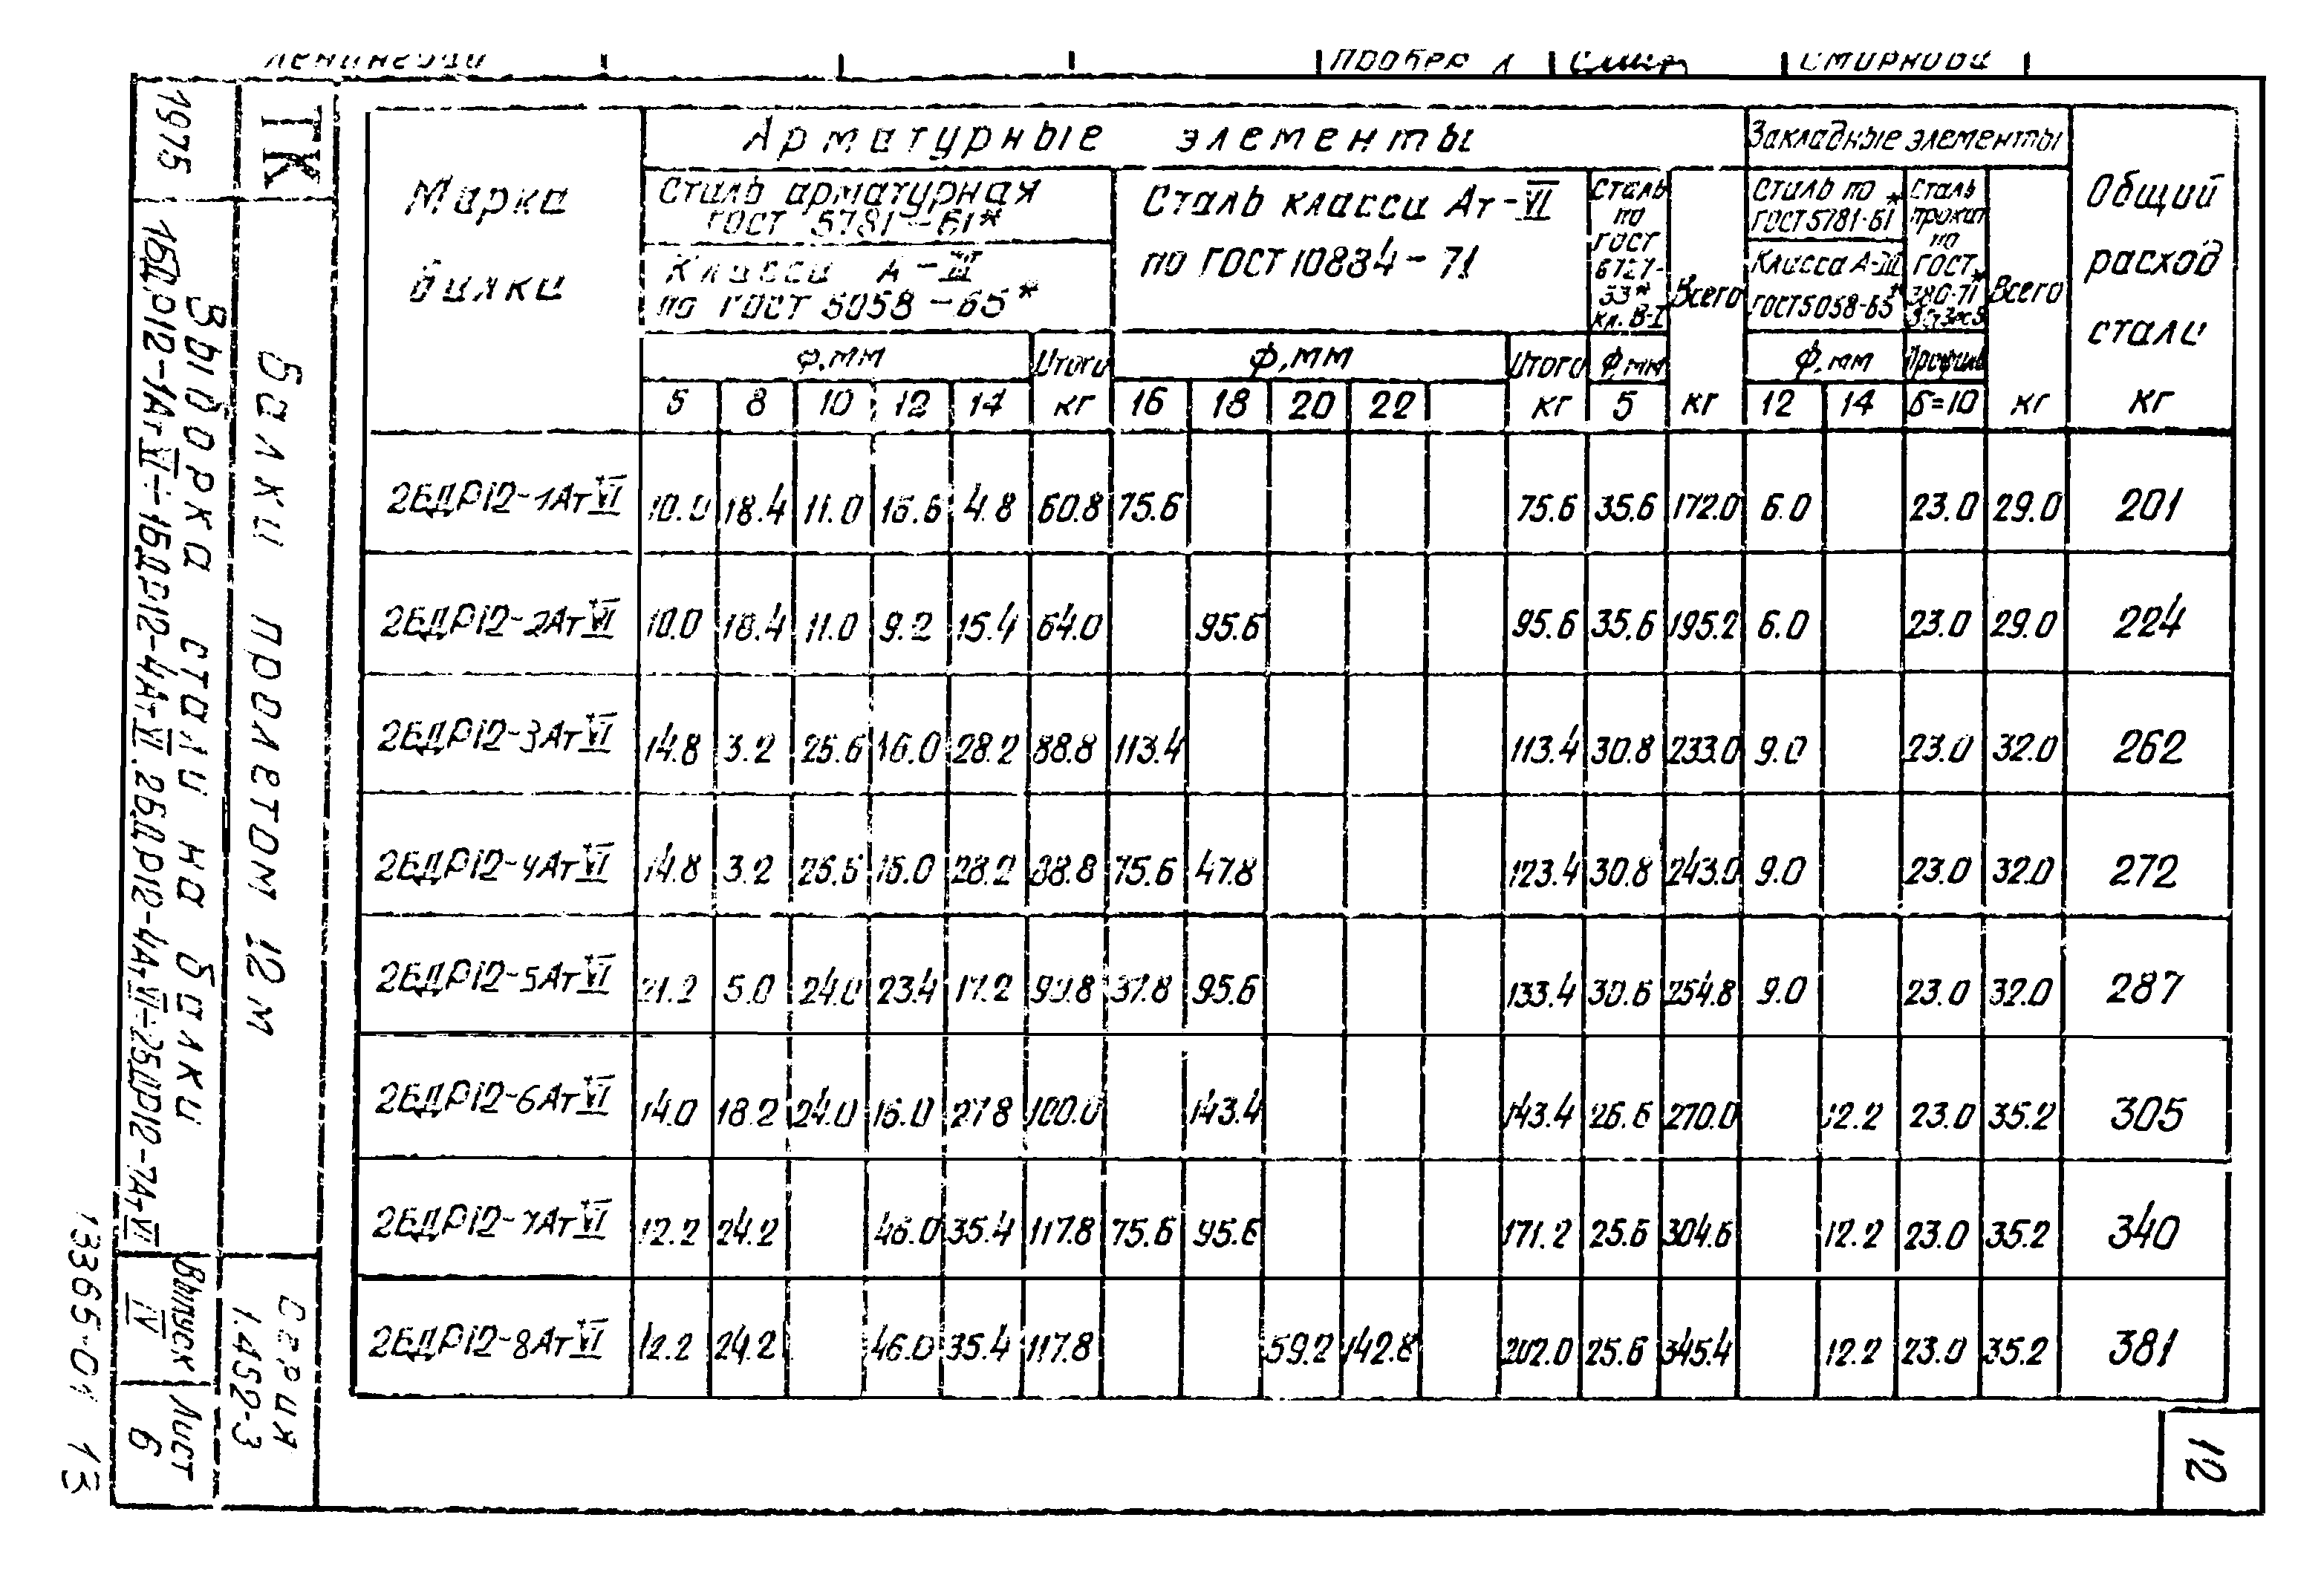 Провер
Смирнова
Арматурные элементы
Закладные элементы
Марка балки
Сталь арматурная ГОСТ 5781-61*
Класса А-III по ГОСТ 5058-65*
Сталь класса Ат-VI по ГОСТ 10884-71
Сталь по ГОСТ 6727-53* кл. В-I
Всего
Сталь по ГОСТ 5781-61*
Класса А-III ГОСТ 5058-65*
Сталь прокат по ГОСТ 380-71*
Всего
Общий расход стали
ф, мм Итого ф, мм Итого ф, мм ф, мм Профиль
5 8 10 12 14 кг 16 18 20 22 кг 5 кг 12 14 δ=10 кг кг
2БДР12-1АтVI 10.0 18.4 11.0 16.6 4.8 60.8 75.6 75.6 35.6 172.0 6.0 23.0 29.0 201
2БДР12-2АтVI 10.0 18.4 11.0 9.2 15.4 64.0 95.6 95.6 35.6 195.2 6.0 23.0 29.0 224
2БДР12-3АтVI 14.8 3.2 25.6 16.0 28.2 88.8 113.4 113.4 30.8 233.0 9.0 23.0 32.0 262
2БДР12-4АтVI 14.8 3.2 26.6 16.0 28.2 88.8 75.6 47.8 123.4 30.8 243.0 9.0 23.0 32.0 272
2БДР12-5АтVI 21.2 5.0 24.0 23.4 17.2 90.8 37.8 95.6 133.4 30.6 254.8 9.0 23.0 32.0 287
2БДР12-6АтVI 14.0 18.2 24.0 16.0 27.8 100.0 143.4 143.4 26.6 270.0 12.2 23.0 35.2 305
2БДР12-7АтVI 12.2 24.2 46.0 35.4 117.8 75.6 95.6 171.2 25.6 304.6 12.2 23.0 35.2 340
2БДР12-8АтVI 12.2 24.2 46.0 35.4 117.8 59.2 142.8 202.0 25.6 345.4 12.2 23.0 35.2 381
ТК
1975
Балки пролетом 12 м
Выборка стали на балки
1БДР12-1АтVI÷1БДР12-4АтVI, 2БДР12-4АтVI÷2БДР12-7АтVI
Серия
1.452-3
Выпуск
IV
Лист
6
13365-01 13
12